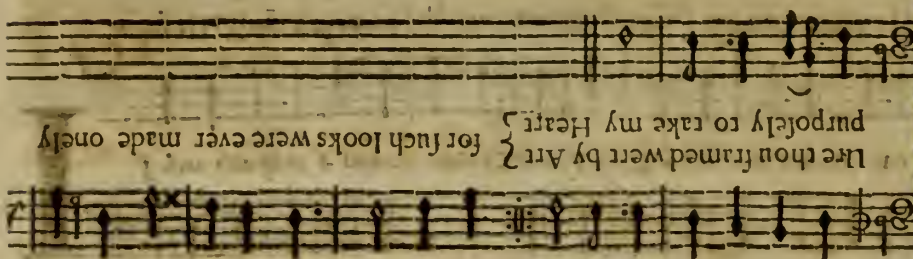 Ure thou framed wert by Art
purpoſely to take my Heart
for ſuch looks were ever made onely